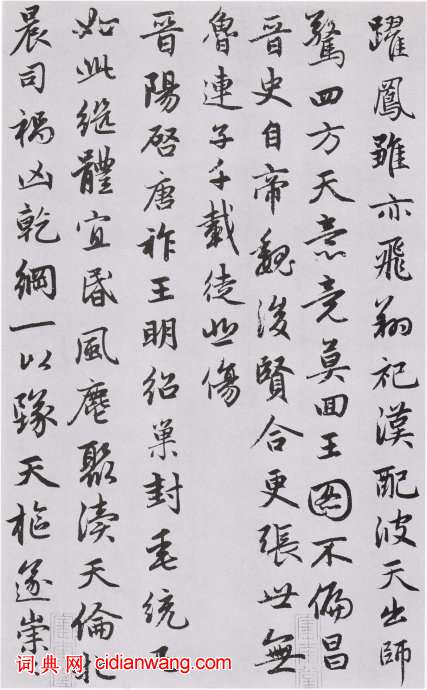 躍鳳雛亦飛翔祀漢配彼天出師
驚四方天意竟莫回王圖不偏昌
晉史自帝魏後賢合更張世無
魯連子千載徒悲傷
晉陽啓唐祚王明紹巢封垂統已
如此繼體宜昏風麀聚瀆天倫牝
晨司禍凶乾綱一以墜天樞遂崇
词典网 cidianwang.com